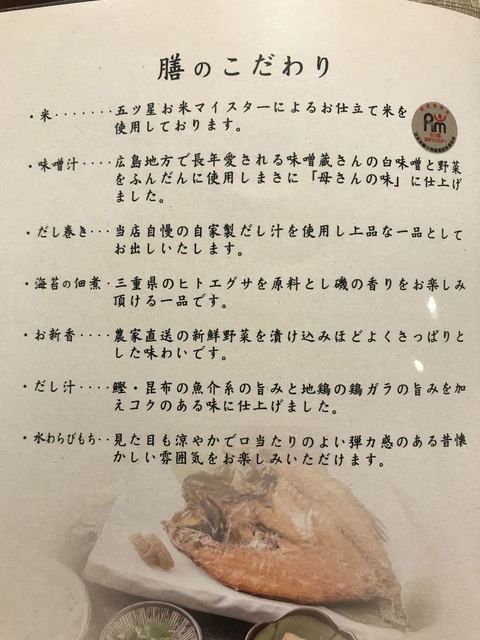 膳のこだわり
・米・・・・・・・五ツ星お米マイスターによるお仕立て米を
使用しております。
・味噌汁・・・・広島地方で長年愛される味噌蔵さんの白味噌と野菜
をふんだんに使用しまさに「母さんの味」に仕上げ
ました。
・だし巻き・・・当店自慢の自家製だし汁を使用し上品な一品として
お出しいたします。
・海苔の佃煮・三重県のヒトエグサを原料とし磯の香りをお楽しみ
頂ける一品です。
・お新香・・・・農家直送の新鮮野菜を漬け込みほどよくさっぱりと
した味わいです。
・だし汁・・・・鰹・昆布の魚介系の旨みと地鶏の鶏ガラの旨みを加
えコクのある味に仕上げました。
・水わらびもち・・見た目も涼やかで口当たりのよい弾力感のある昔懐
かしい雰囲気をお楽しみいただけます。